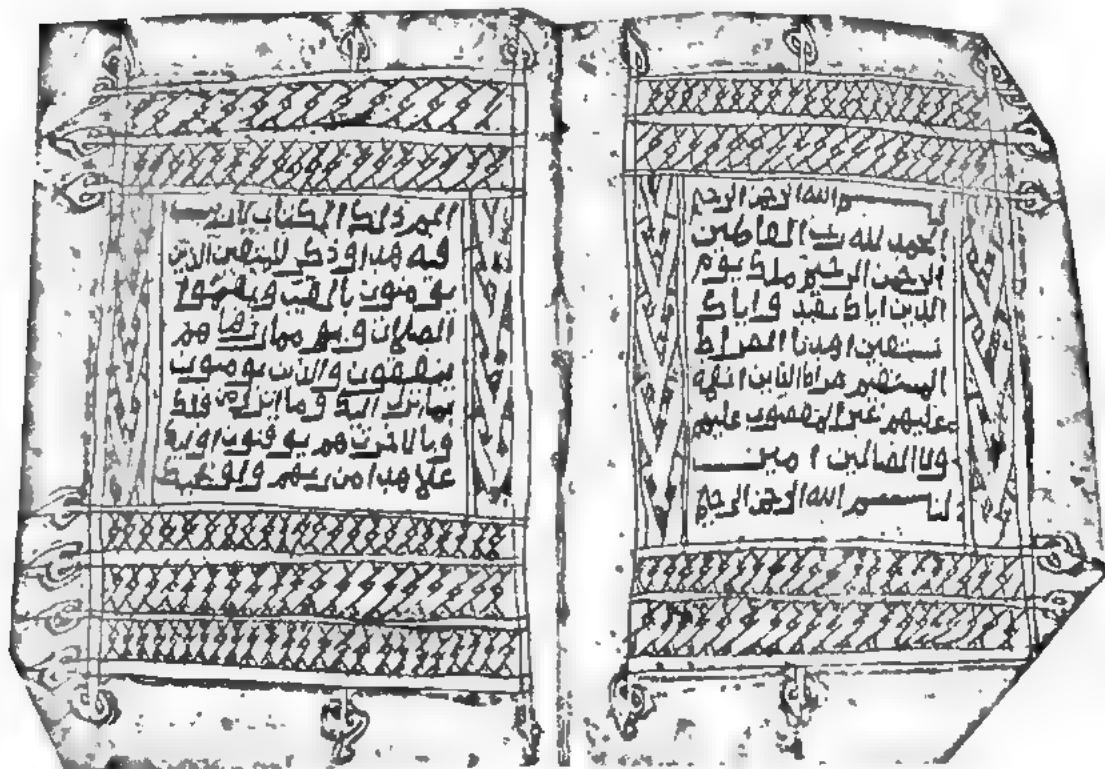 بسم الله الرحمن الرحيم
الحمد لله رب العالمين
الرحمن الرحيم ملك يوم
الدين اياك نعبد واياك
نستعين اهدنا الصراط
المستقيم صراط الذين انعمة
عليهم غير المغضوب عليهم
ولا الضالين امين
بسم الله الرحمن الرحيم
الم ذلك الكتاب لا ريب
فيه هدا وذكر للمتقين الذين
يومنون بالغيب ويقيموا
الصلات و مما رزقناهم
ينفقون والذين يومنون
بما نزل اليك وما انزل من قبلك
وبالاخرت هم يوقنون اوليك
علا هدا من ربهم